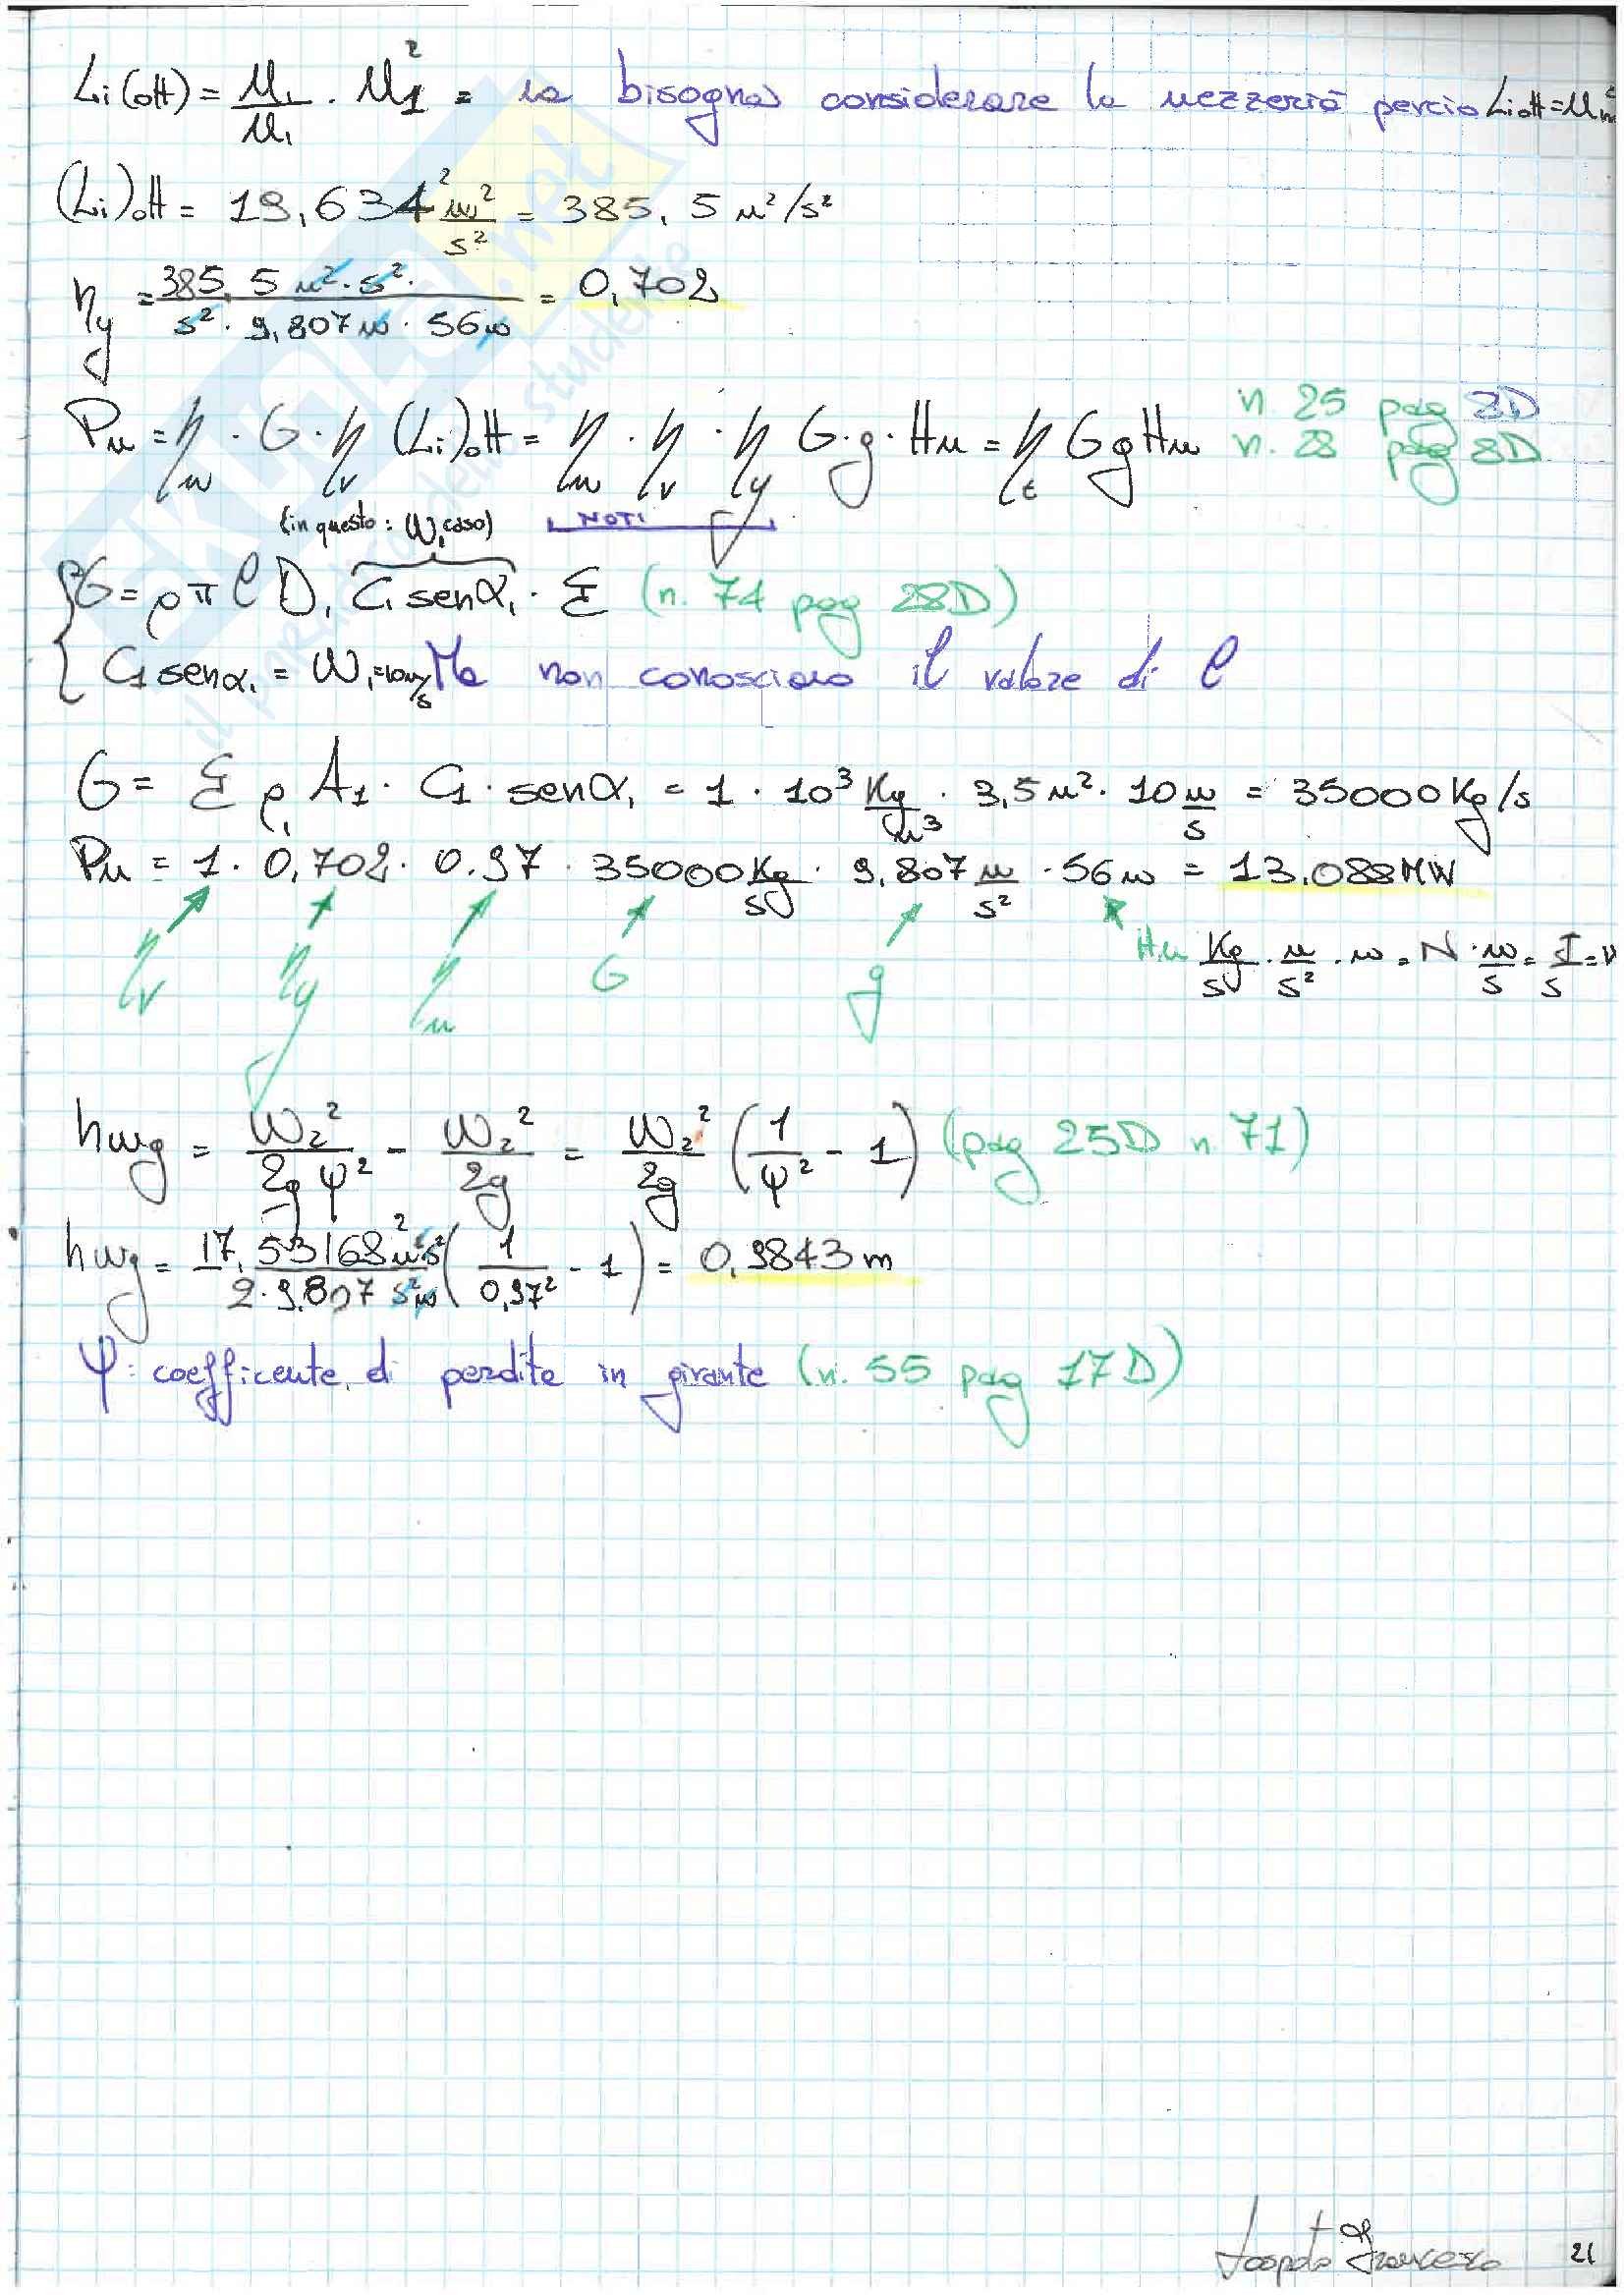 Li(ott) = u₁/u₁ · u₁² = ma bisogna considerare la mezzeria perciò Li ott = um²
(Li)ott = 19,634² m²/s² = 385,5 m²/s²
ηy = 385,5 m²·s² / s²·9,807m·56m = 0,702
Pu = ηm · G · ηv (Li)ott = ηm · ηv · ηy G·g·Hu = ηt G g Hu n. 25 pag 8D
n. 28 pag 8D
(in questo caso: W₁) NOTI
G = ρ π l D₁ C₁ senα₁ · ξ (n. 74 pag 28D)
C₁ senα₁ = W₁ = 10m/s Ma non conosciamo il valore di l
G = ξ ρ₁ A₁ · C₁ · senα₁ = 1 · 10³ Kg/m³ · 3,5m² · 10 m/s = 35000 Kg/s
Pu = 1 · 0,702 · 0.97 · 35000 Kg/s · 9,807 m/s² · 56m = 13.088 MW
ηv ηy ηm G g Hu Kg/s · m/s² · m = N · m/s = J/s = W
hwg = W₂²/2gψ² - W₂²/2g = W₂²/2g (1/ψ² - 1) (pag 25D n. 71)
hwg = 17,53168² m²s²/2·9.807 s²m (1/0,97² - 1) = 0,9843 m
ψ: coefficente di perdite in girante (n. 55 pag 17D)
Francesco 21
il
studente